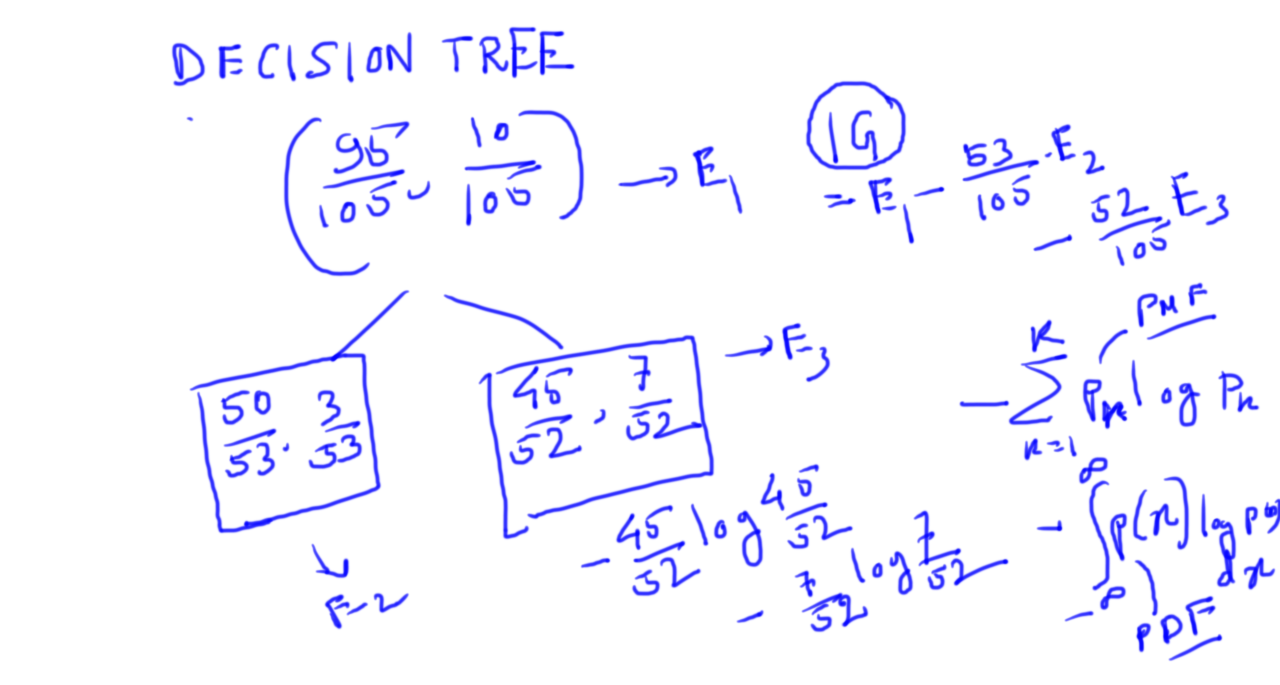 DECISION TREE
(95/105, 10/105) → E₁
IG
= E₁ − 53/105 · E₂
− 52/105 E₃
50/53, 3/53
→ E₂
45/52, 7/52
→ E₃
− 45/52 log 45/52
− 7/52 log 7/52
PMF
− ∑ₖ₌₁ᴷ Pₖ log Pₖ
− ∫₋∞^∞ p(x) log p(x) dx
PDF